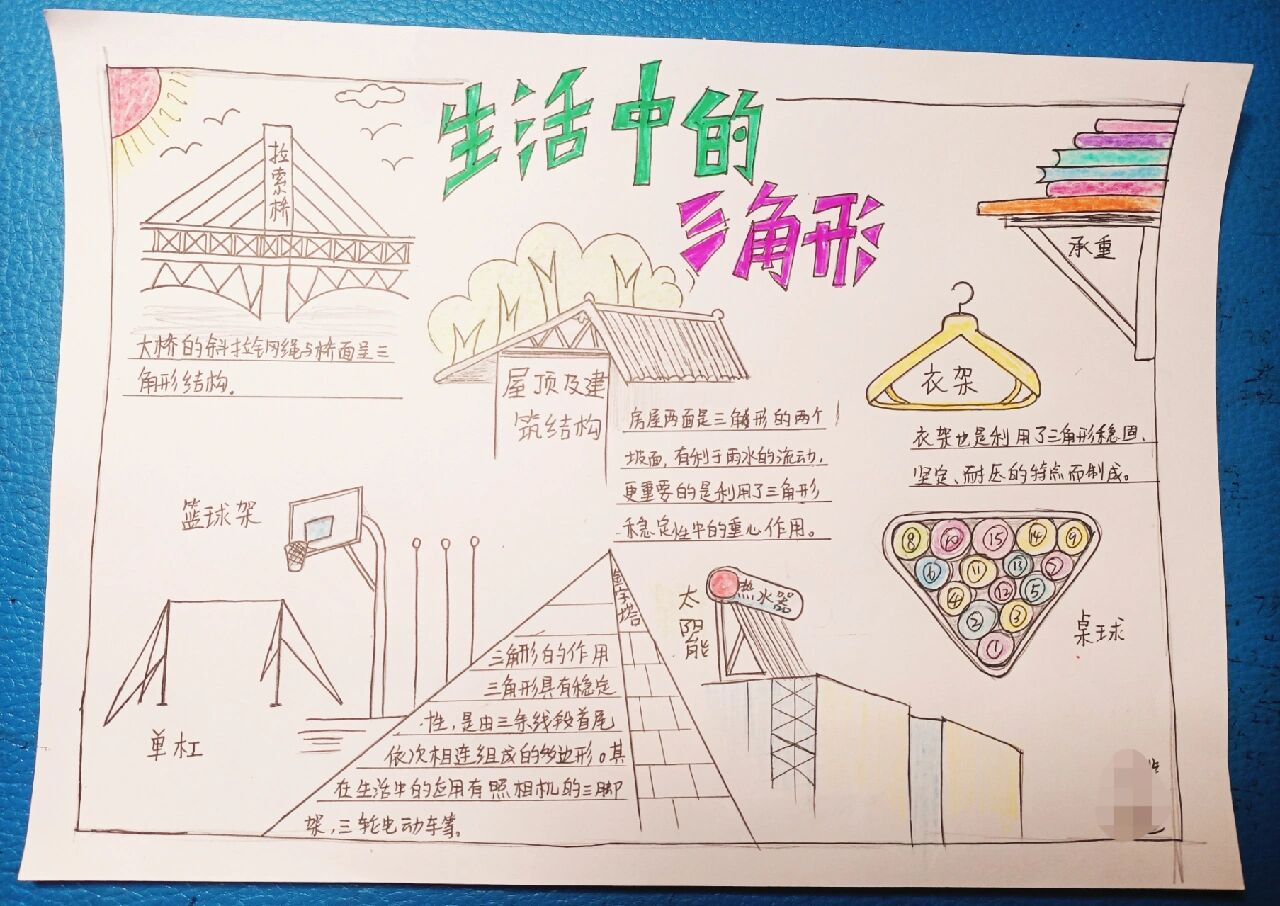 生活中的
三角形
拉索桥
大桥的斜拉钢绳与桥面呈三
角形结构。
承重
衣架
衣架也是利用了三角形稳固、
坚定、耐压的特点而制成。
屋顶及建
筑结构
房屋两面是三角形的两个
坡面,有利于雨水的流动,
更重要的是利用了三角形
稳定性中的重心作用。
篮球架
单杠
金字塔
三角形的作用
三角形具有稳定
性,是由三条线段首尾
依次相连组成的多边形。其
在生活中的应用有照相机的三脚
架,三轮电动车等。
太阳能
热水器
⑧ ⑩ ⑮ ⑭ ⑨
⑥ ⑪ ⑬ ⑦
④ ⑫ ⑤
② ③
①
桌球